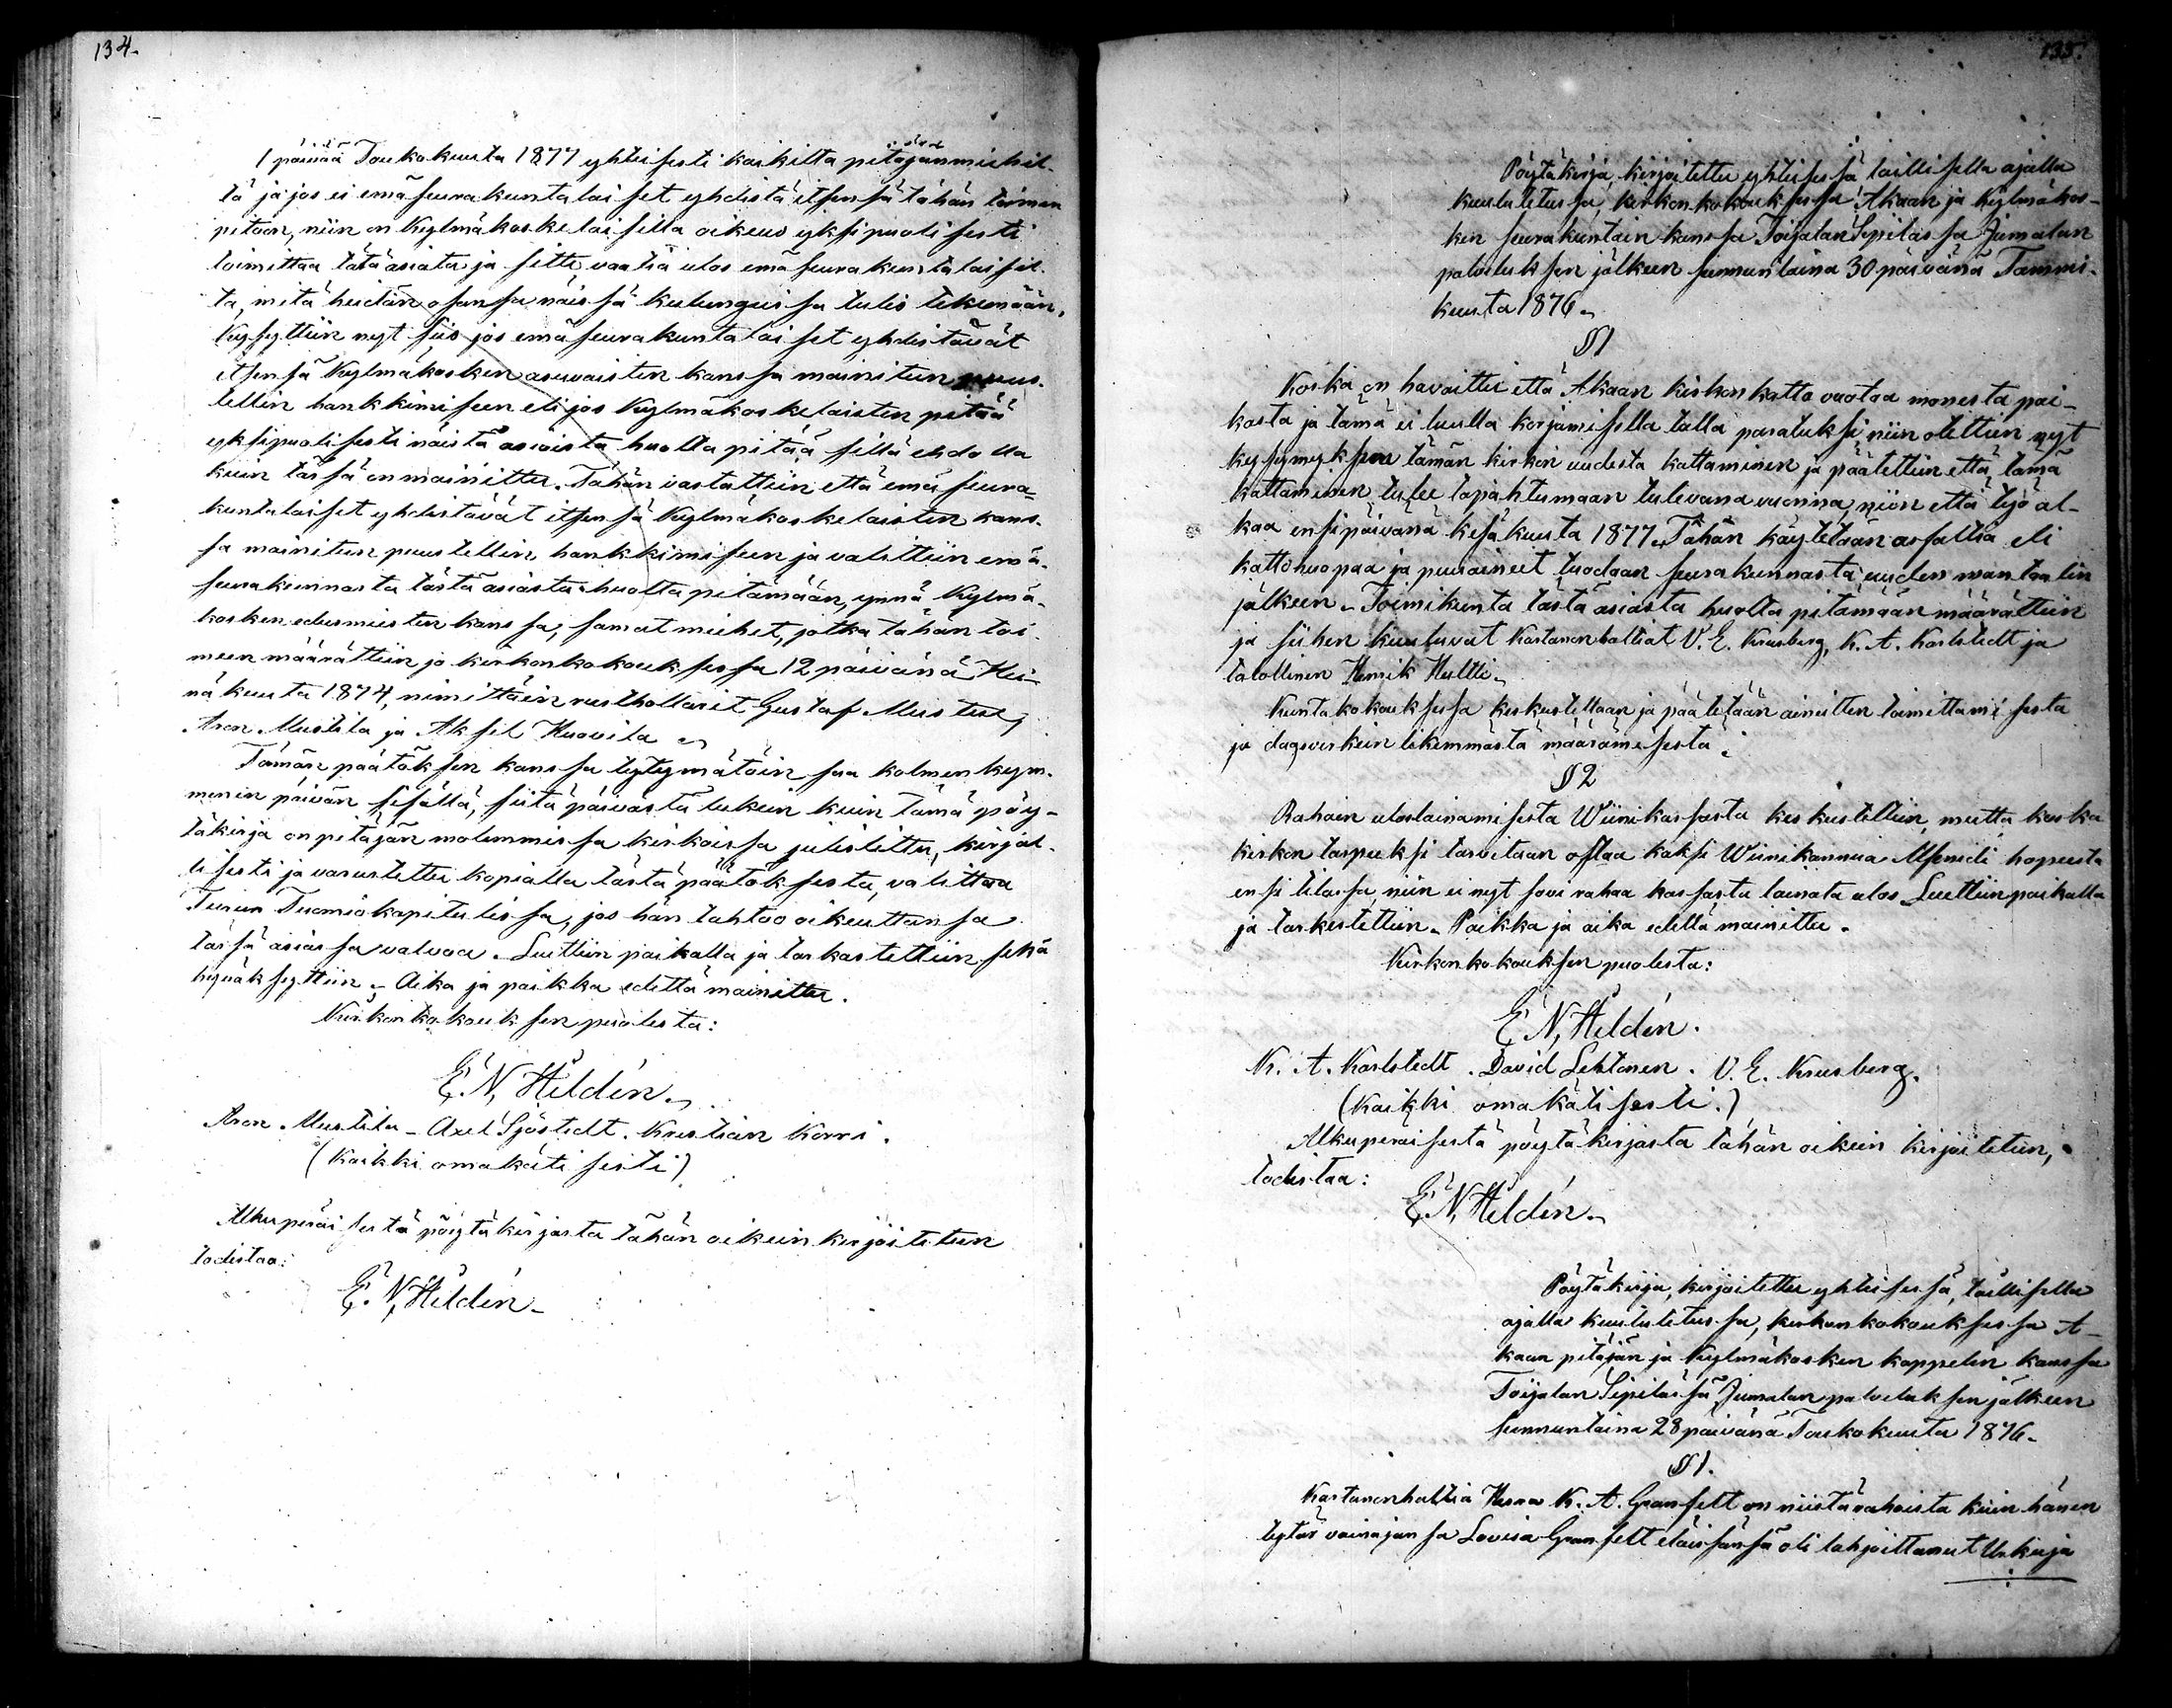 134.
1 päivää Toukokuuta 1877 yhteisesti kaikilta pitäjänmiehil-
tä ja jos ei emäseurakuntalaiset yhdistä itsensä tähän toimen
pitoon, niin on Kylmäkoskelaisilla oikeus yksipuolisesti
toimittaa tätä asiata ja sitte vaatia ulos emäseurakuntalaisil-
ta, mitä heidän osansa näissä kulungeissa tulis tekemään.
Kysyttiin nyt siis jos emäseurakuntalaiset yhdistävät
itsensä Kylmäkosken asuvaisten kanssa mainitun puus-
tellin hankkimiseen eli jos Kylmäkoskelaisten pitää
yksipuolisesti näistä asioista huolta pitää sillä ehdolla
kuin tässä on mainittu. Tähän vastattiin että emäseura-
kuntalaiset yhdistävät itsensä Kylmäkoskelaisten kans-
sa mainitun puustellin hankkimiseen ja valittiin emä-
seurakunnasta tästä asiasta huolta pitämään, ynnä Kylmä-
kosken edusmiesten kanssa, samat miehet, jotka tähän toi-
meen määrättiin jo kirkonkokouksessa 12 päivänä Hei-
näkuuta 1874, nimittäin rusthollarit Gustaf Mustue,
Aron Mustila ja Aksel Huovila
Tämän päätöksen kanssa tyytymätöin saa kolmenkym-
menen päivän sisällä, siitä päivästä lukein kuin tämä pöy-
täkirja on pitäjän molemmissa kirkoissa julistettu, kirjal-
lisesti ja varustettu kopialla tästä päätöksestä, valittaa
Turun Tuomiokapitulissa, jos hän tahtoo oikeuttansa
tässä asiassa valvoa. Luettiin paikalla ja tarkastettiin sekä
hyväksyttiin. Aika ja paikka edellä mainittu.
Kirkonkokouksen puolesta:
E. N. Heldén.
Aron Mustila - Axel Sjöstedt. Kristian Korri.
(Kaikki omakätisesti)
Alkuperäisestä pöytäkirjasta tähän oikein kirjoitetun
todistaa:
E. N. Heldén
135.
Pöytäkirja, kirjoitettu yhteisessä laillisella ajalla
kuulutetussa, kirkonkokouksessa Akaan ja Kylmäkos-
ken seurakuntain kanssa Toijalan Sipilässä Jumalan
palveluksen jälkeen sunnuntaina 30 päivänä Tammi-
kuuta 1876.
§ 1
Koska on havaittu että Akaan kirkon katto vuotaa monesta pai-
kasta ja tämä ei luulla korjamisella tulla paratuksi niin otettiin nyt
kysymyksen tämän kirkon uudesta kattaminen ja päätettiin että tämä
kattaminen tulee tapahtumaan tulevana vuonna, niin että työ al-
kaa ensi päivänä kesäkuuta 1877. Tähän käytetään asfaltia eli
kattohuopaa ja puuaineet tuodaan seurakunnasta uuden mantalin
jälkeen. Toimikunta tästä asiasta huolta pitämään määrättiin
ja siihen kuuluvat Kartanonhaltiat V. E. Krusberg, K. A. Karlstedt ja
talollinen Henrik Hultti.
Kuntakokouksessa keskustellaan ja päätetään ainetten toimittamisesta
ja dagsverkein likemmästä määrämisestä.
§ 2
Rahain uloslainamisesta Wiinikassasta keskusteltiin, mutta koska
kirkon tarpeeksi tarvitaan ostaa kaksi Wiinikannua Alfenidi hopeesta
ensi tilassa, niin ei nyt sovi rahaa kassasta lainata ulos. Luettiin paikalla
ja tarkestettiin. Paikka ja aika edellä mainittu.
Kirkonkokouksen puolesta:
E. N. Heldén.
K. A. Karlstedt. David Lehtonen. V. E. Krusberg.
(Kaikki omakätisesti.)
Alkuperäisestä pöytäkirjasta tähän oikein kirjoitetun,
todistaa:
E. N. Heldén.
Pöytäkirja, kirjoitettu yhteisessä, laillisella
ajalla kuulutetussa, kirkonkokouksessa A-
kaan pitäjän ja Kylmäkosken kappelin kanssa
Toijalan Sipilässä Jumalan palveluksen jälkeen
sunnuntaina 28 päivänä Toukokuuta 1876.
§ 1.
Kartanonhaltia Herra K. A. Granfelt on niistä rahoista kuin hänen
tytär vainajansa Lovisa Granfelt eläissänsä oli lahjoittanut Urkuja